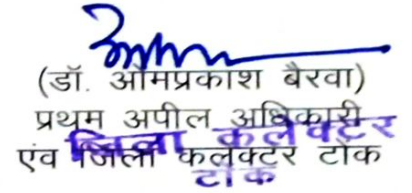 (डॉ. ओमप्रकाश बैरवा)
प्रथम अपील अधिकारी
एंव जिला कलक्टर टोंक
जिला कलेक्टर
टोंक